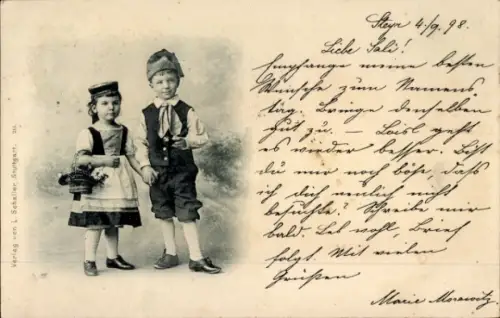 Steyr 4./9. 98.
Liebe Sali!
Empfange meine besten
Wünsche zum Namens-
tag. Bringe denselben
gut zu. – Loisl geht
es wieder besser. Bist
du mir noch böse, dass
ich dich neulich nicht
besuchte? Schreibe mir
bald. Leb wohl, Brief
folgt. Mit vielen
Grüßen
Marie Morawitz.
Verlag von L. Schaller, Stuttgart.